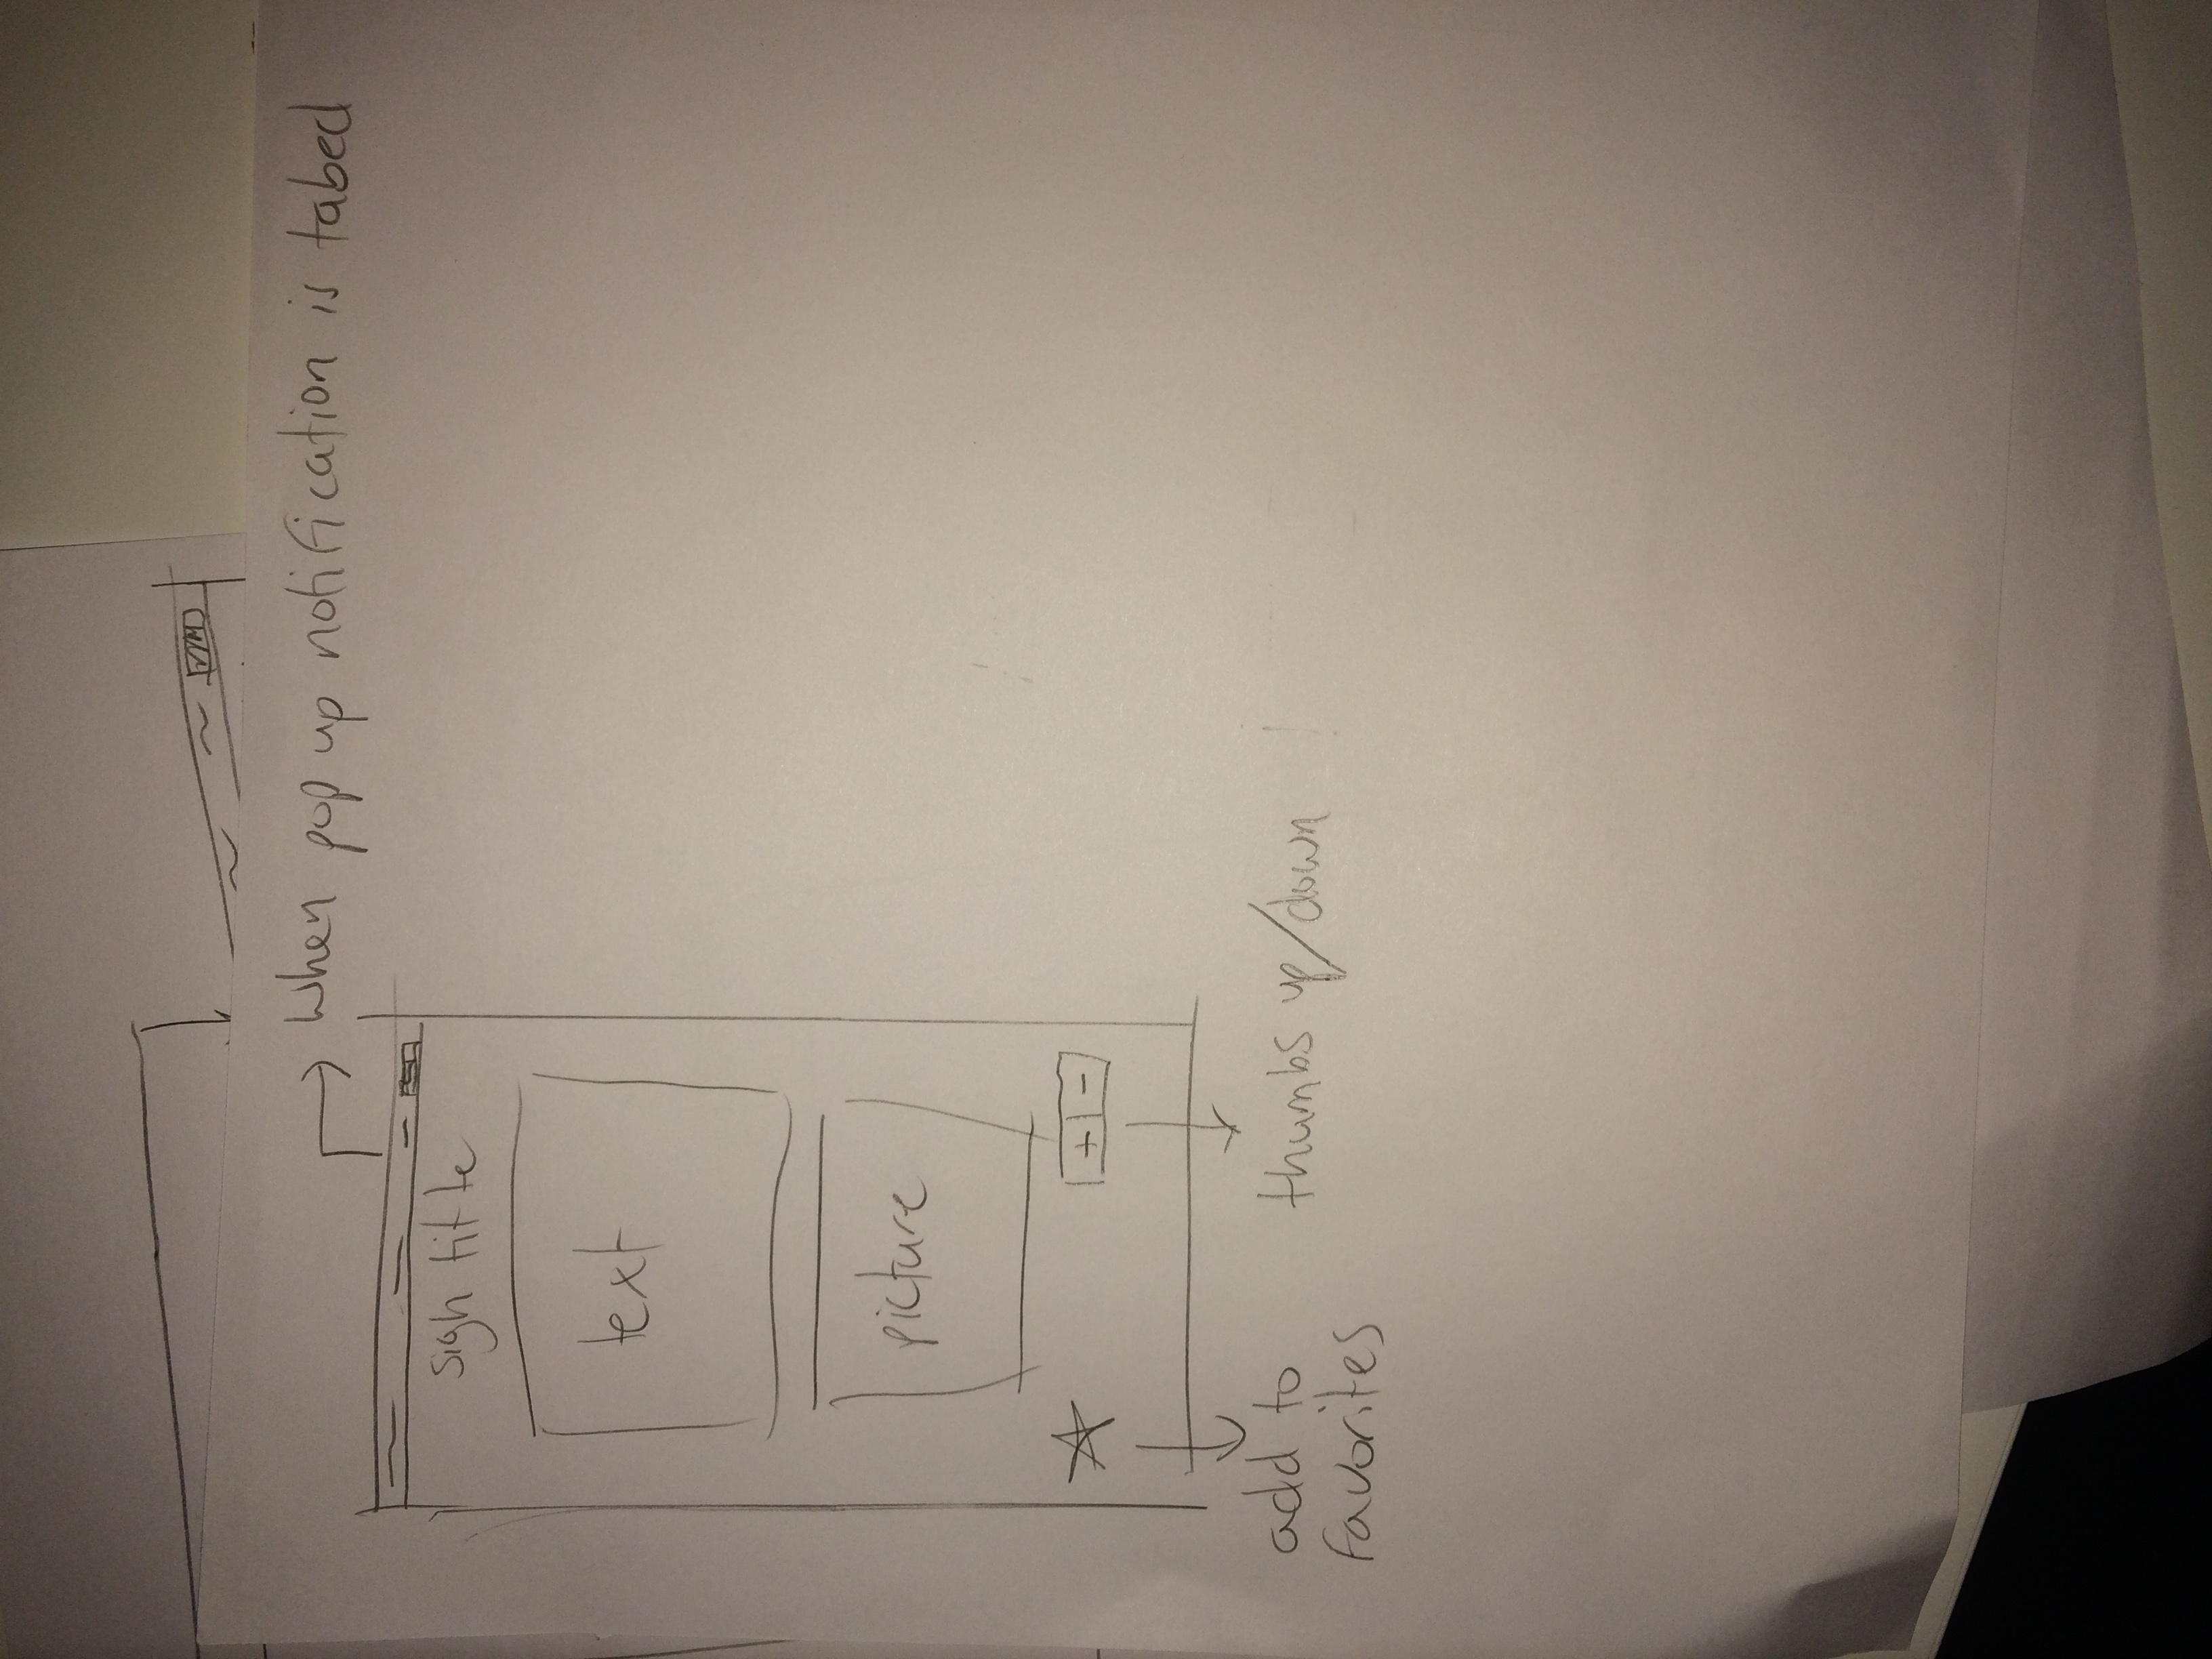 When pop up notification is tabed
sign title
text
picture
+ -
add to
favorites
thumbs up/down